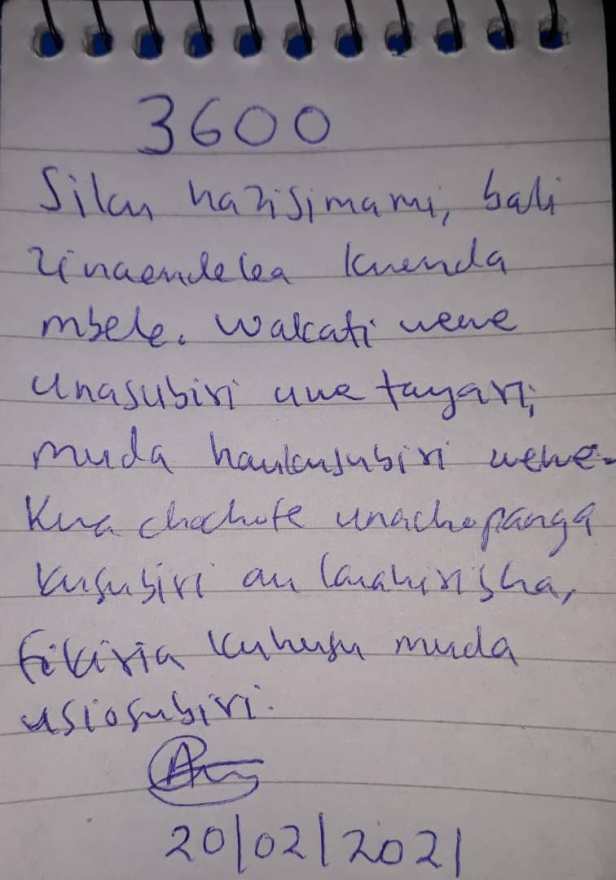 3600
Siku hazisimami, bali
zinaendelea kuenda
mbele. Wakati wewe
unasubiri uwe tayari,
muda haukusubiri wewe.
Kwa chochote unachopanga
kusubiri au kuahirisha,
fikiria kuhusu muda
usiosubiri.
20/02/2021